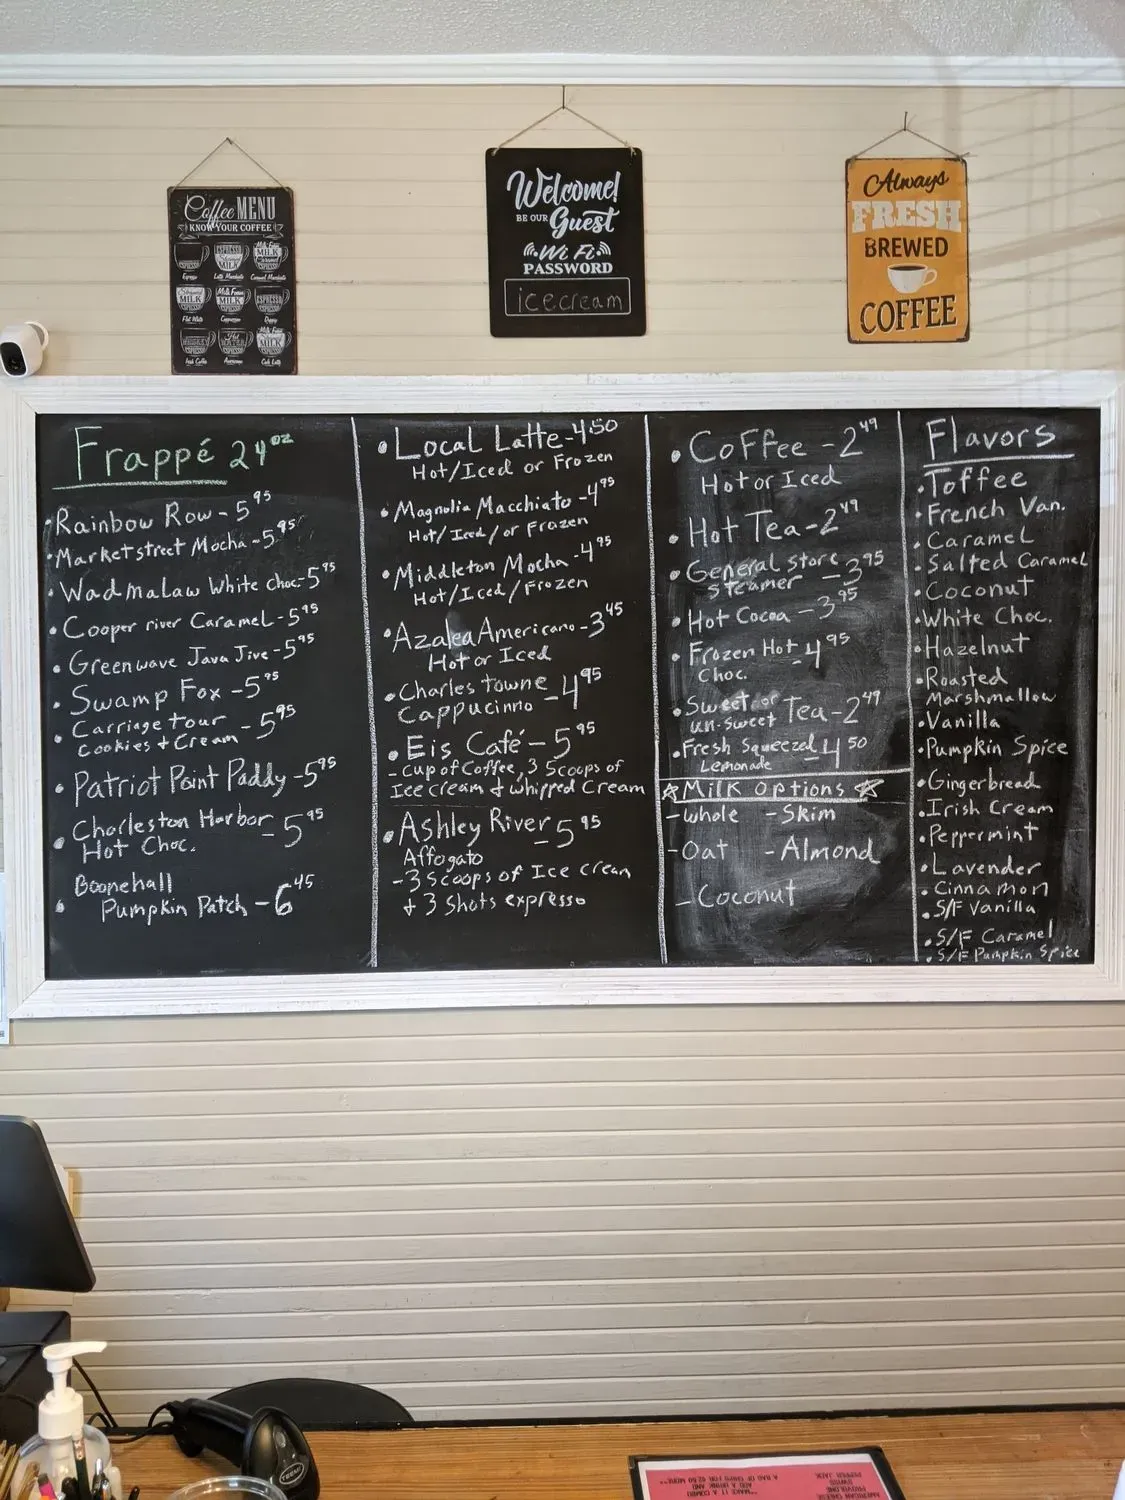 Coffee MENU
KNOW YOUR COFFEE
ESPRESSO
MILK
Espresso
Flat White
Cappuccino
Irish Coffee
Americano
Welcome!
BE OUR Guest
Wi Fi
PASSWORD
icecream
Always
FRESH
BREWED
COFFEE
Frappé 24oz
•Rainbow Row - 5 95
•Marketstreet Mocha - 5 95
•Wadmalaw White choc - 5 95
•Cooper river Caramel - 5 95
•Greenwave Java Jive - 5 95
•Swamp Fox - 5 95
•Carriage tour
Cookies + Cream - 5 95
•Patriot Point Paddy - 5 95
•Charleston Harbor
Hot Choc. - 5 95
Boonehall
•Pumpkin Patch - 6 45
•Local Latte - 4 50
Hot/Iced or Frozen
•Magnolia Macchiato - 4 95
Hot/Iced/or Frozen
•Middleton Mocha - 4 95
Hot/Iced/Frozen
•Azalea Americano - 3 45
Hot or Iced
•Charles towne
Cappucinno - 4 95
•Eis Café - 5 95
-Cup of Coffee, 3 Scoops of
Ice cream + whipped Cream
•Ashley River - 5 95
Affogato
-3 Scoops of Ice cream
+ 3 Shots expresso
•Coffee - 2 49
Hot or Iced
•Hot Tea - 2 49
•General Store
Steamer - 3 95
•Hot Cocoa - 3 95
•Frozen Hot - 4 95
Choc.
•Sweet or
un-sweet Tea - 2 49
•Fresh Squeezed
Lemonade - 4 50
☆Milk Options☆
-Whole -Skim
-Oat -Almond
-Coconut
Flavors
•Toffee
•French Van.
•Caramel
•Salted Caramel
•Coconut
•White Choc.
•Hazelnut
•Roasted
Marshmallow
•Vanilla
•Pumpkin Spice
•Gingerbread
•Irish Cream
•Peppermint
•Lavender
•Cinnamon
•S/F Vanilla
•S/F Caramel
•S/F Pumpkin Spice
AMERICAN CHEESE
PROVOLONE
SWISS
PEPPER JACK
**MAKE IT A COMBO
ADD A DRINK AND
A BAG OF CHIPS FOR $2.50 MORE**